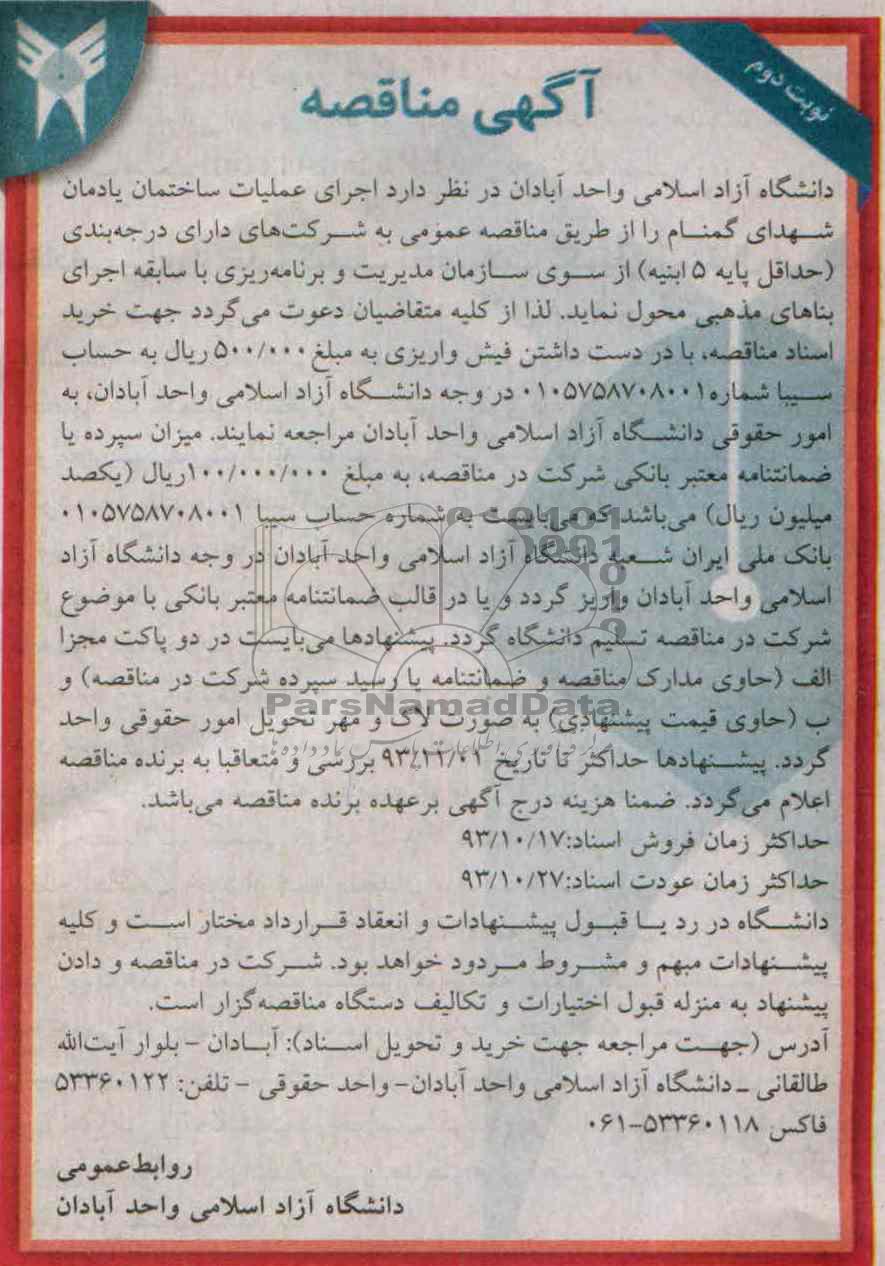 نوبت دوم
آگهی مناقصه
دانشگاه آزاد اسلامی واحد آبادان در نظر دارد اجرای عملیات ساختمان یادمان
شهدای گمنام را از طریق مناقصه عمومی به شرکت‌های دارای درجه‌بندی
(حداقل پایه ۵ ابنیه) از سوی سازمان مدیریت و برنامه‌ریزی با سابقه اجرای
بناهای مذهبی محول نماید. لذا از کلیه متقاضیان دعوت می‌گردد جهت خرید
اسناد مناقصه، با در دست داشتن فیش واریزی به مبلغ ۵۰۰/۰۰۰ ریال به حساب
سیبا شماره ۰۱۰۵۷۵۸۷۰۸۰۰۱ در وجه دانشگاه آزاد اسلامی واحد آبادان، به
امور حقوقی دانشگاه آزاد اسلامی واحد آبادان مراجعه نمایند. میزان سپرده یا
ضمانتنامه معتبر بانکی شرکت در مناقصه، به مبلغ ۱۰۰/۰۰۰/۰۰۰ریال (یکصد
میلیون ریال) می‌باشد که می‌بایست به شماره حساب سیبا ۰۱۰۵۷۵۸۷۰۸۰۰۱
بانک ملی ایران شعبه دانشگاه آزاد اسلامی واحد آبادان در وجه دانشگاه آزاد
اسلامی واحد آبادان واریز گردد و یا در قالب ضمانتنامه معتبر بانکی با موضوع
شرکت در مناقصه تسلیم دانشگاه گردد. پیشنهادها می‌بایست در دو پاکت مجزا
الف (حاوی مدارک مناقصه و ضمانتنامه یا رسید سپرده شرکت در مناقصه) و
ParsNamadData
ب (حاوی قیمت پیشنهادی) به صورت لاک و مهر تحویل امور حقوقی واحد
گردد. پیشنهادها حداکثر تا تاریخ ۹۳/۱۱/۰۱ بررسی و متعاقبا به برنده مناقصه
اعلام می‌گردد. ضمنا هزینه درج آگهی برعهده برنده مناقصه می‌باشد.
حداکثر زمان فروش اسناد:۹۳/۱۰/۱۷
حداکثر زمان عودت اسناد:۹۳/۱۰/۲۷
دانشگاه در رد یا قبول پیشنهادات و انعقاد قرارداد مختار است و کلیه
پیشنهادات مبهم و مشروط مردود خواهد بود. شرکت در مناقصه و دادن
پیشنهاد به منزله قبول اختیارات و تکالیف دستگاه مناقصه‌گزار است.
آدرس (جهت مراجعه جهت خرید و تحویل اسناد): آبادان - بلوار آیت‌الله
طالقانی ـ دانشگاه آزاد اسلامی واحد آبادان- واحد حقوقی - تلفن: ۵۳۳۶۰۱۲۲
فاکس ۵۳۳۶۰۱۱۸-۰۶۱
روابط‌عمومی
دانشگاه آزاد اسلامی واحد آبادان